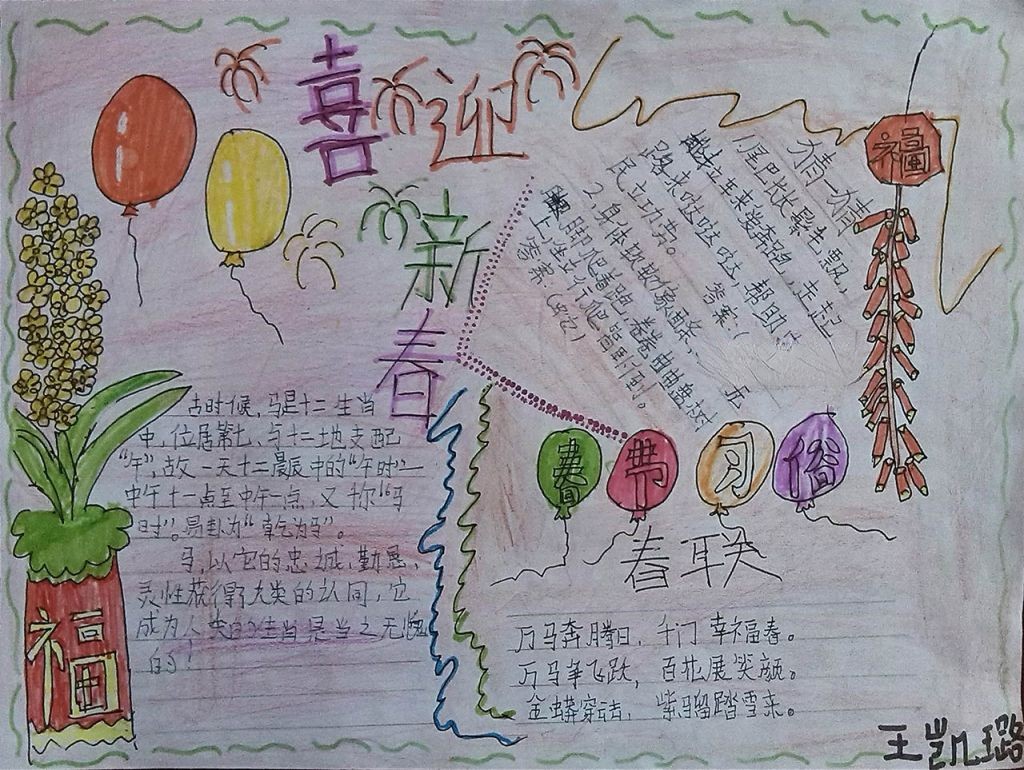 喜迎
新
春
猜一猜
1尾巴长长鬃毛飘,
站立车来爱奔跑,走起
路来哒哒哒,帮助人
民立功劳。 答案:(
2.身体软软像面条, 无
脚爬着跑,卷卷曲曲盘树
上,坐立行爬皆卧倒。
答案:(蛇)
福
古时候,马是十二生肖
中,位居第七、与十二地支配
"午",故一天十二晨辰中的"午时"—
中午十一点至中午一点,又称"马
时"。易卦为"乾为马"。
马,以它的忠诚,勤恳,
灵性获得了人类的认同,它
成为人类的生肖是当之无愧
的!
福
春节习俗
春联
万马奔腾日, 千门幸福春。
万马争飞跃, 百花展笑颜。
金蟒穿云去, 紫骝踏雪来。
王凯璐